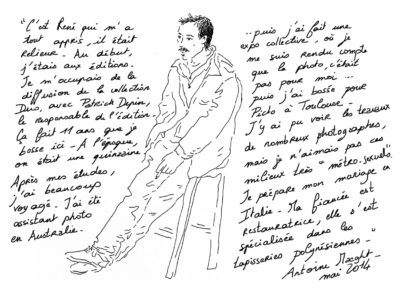 "C'est René qui m'a
tout appris, il était
relieur. Au début,
j'étais aux éditions.
Je m'occupais de la
diffusion de la collection
Duo, avec Patrick
le responsable de l'édition.
Ça fait 11 ans que je
bosse ici - A l'époque,
on était une quinzaine
Après mes études,
j'ai beaucoup
voyagé. J'ai été
assistant photo
en Australie.
...puis j'ai fait une
expo collective où je
me suis rendu compte
que la photo, c'était
pas pour moi...
puis j'ai bossé pour
Picto à Toulouse -
J'y ai pu voir les travaux
de nombreux photographes,
mais je n'aimais pas ces
milieux très "métro.sexuels".
Je prépare mon mariage en
Italie - Ma fiancée est
restauratrice, elle s'est
spécialisée dans les
tapisseries polynésiennes - "
Antoine Maeght -
mai 2014